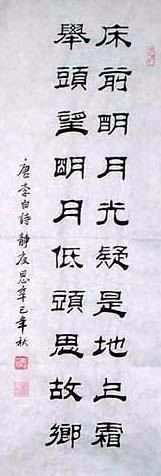 床前明月光疑是地上霜
舉頭望明月低頭思故鄉
唐李白詩靜夜思辛巳年秋